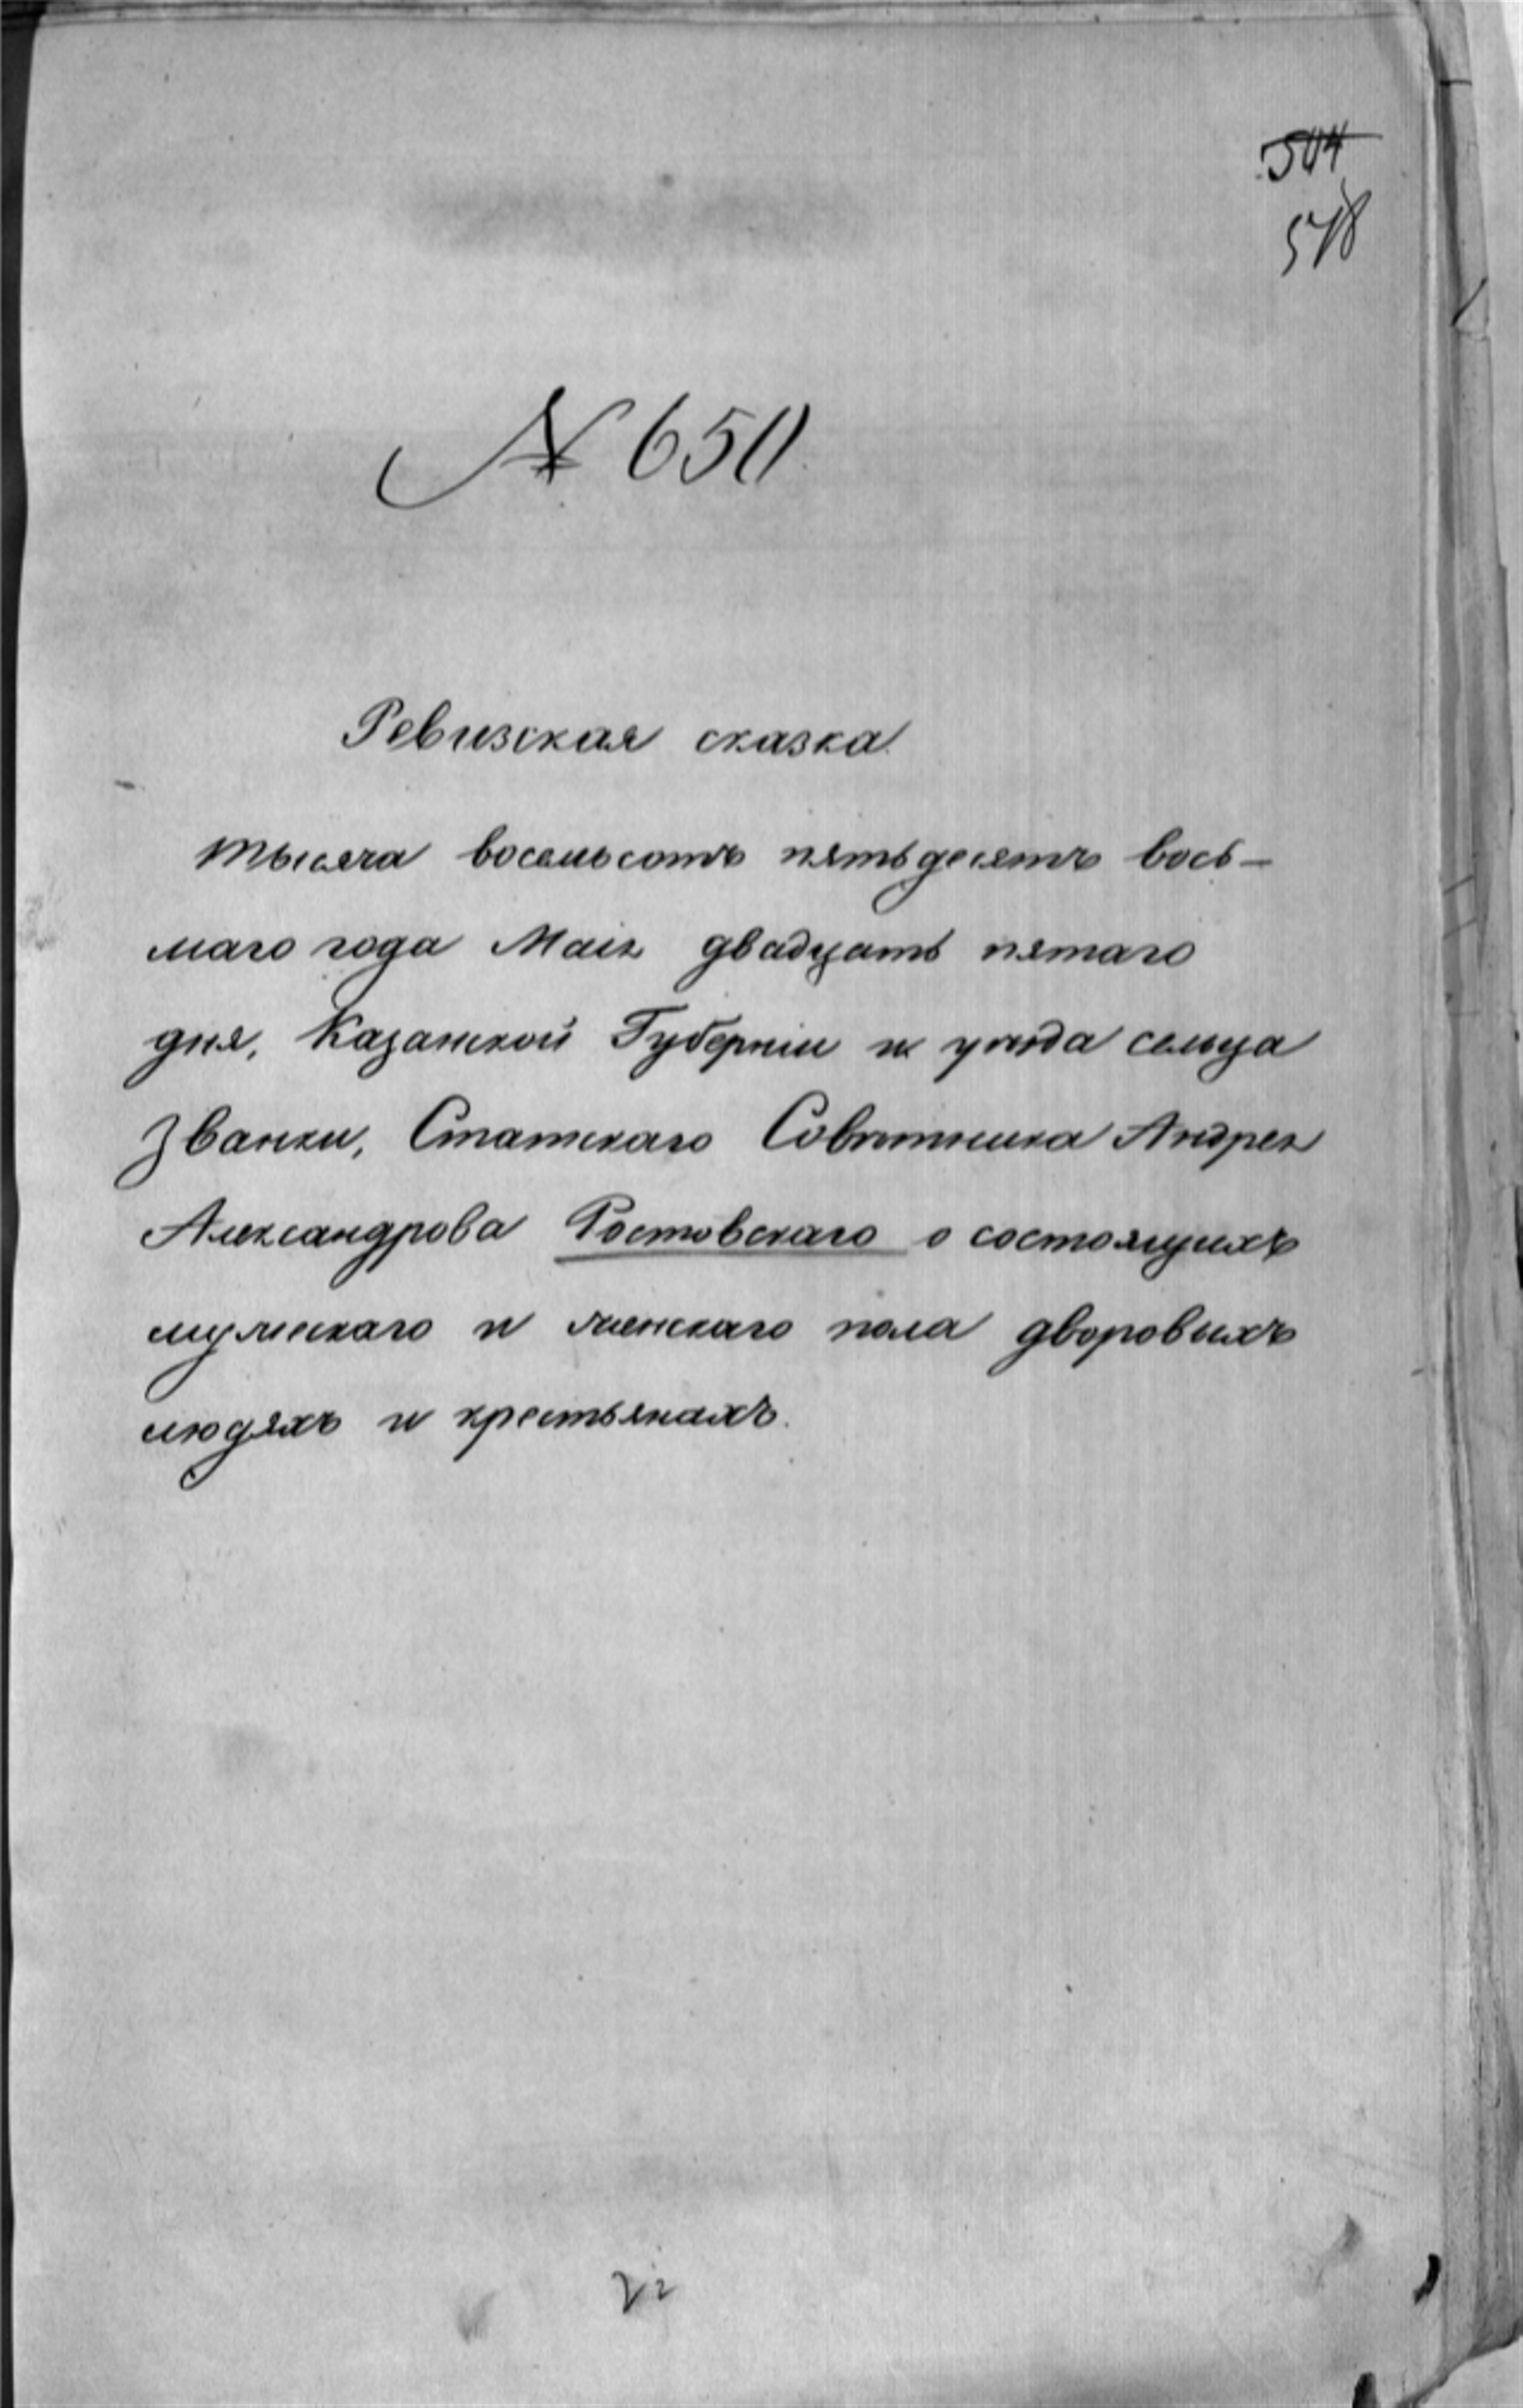 504
518
№ 650
Ревизская сказка
тысяча восемьсотъ пятьдесятъ вось-
маго года Маія двадцать пятаго
дня, Казанской Губерніи и уѣзда сельца
Званки, Статскаго Совѣтника Андрея
Александрова Ростовскаго о состоящихъ
мужескаго и женскаго пола дворовыхъ
людяхъ и крестьянахъ.